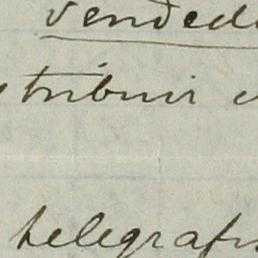 vended
stribuir e
telegraf